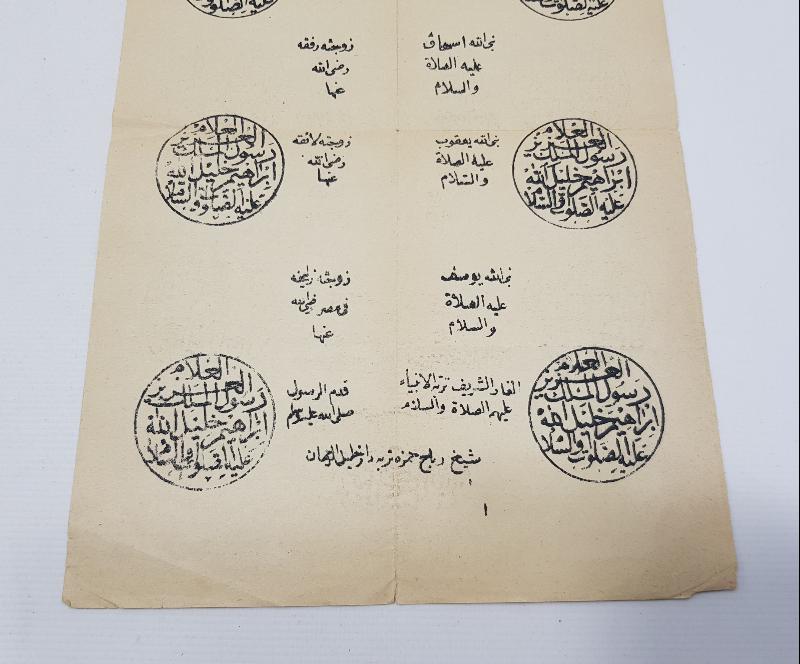 عليه الصلوة
عليه الصلوة
نبى الله اسحاق
عليه الصلاة
والسلام
زوجته رفقه
رضى الله
عنها
العلام
العزيز
رسول الملك
ابراهيم خليل الله
عليه الصلوة والسلام
نبى الله يعقوب
عليه الصلاة
والسلام
زوجته لائقه
رضى الله
عنها
العلام
العزيز
رسول الملك
ابراهيم خليل الله
عليه الصلوة والسلام
نبى الله يوسف
عليه الصلاة
والسلام
زوجته زليخه
فى مصر رضى الله
عنها
العلام
العزيز
رسول الملك
ابراهيم خليل الله
عليه الصلوة والسلام
الغار الشريف تربة الانبياء
عليهم الصلاة والسلام
قدم الرسول
صلى الله عليه وسلم
العلام
العزيز
رسول الملك
ابراهيم خليل الله
عليه الصلوة والسلام
شيخ حمزه تربه دار خليل الرحمان